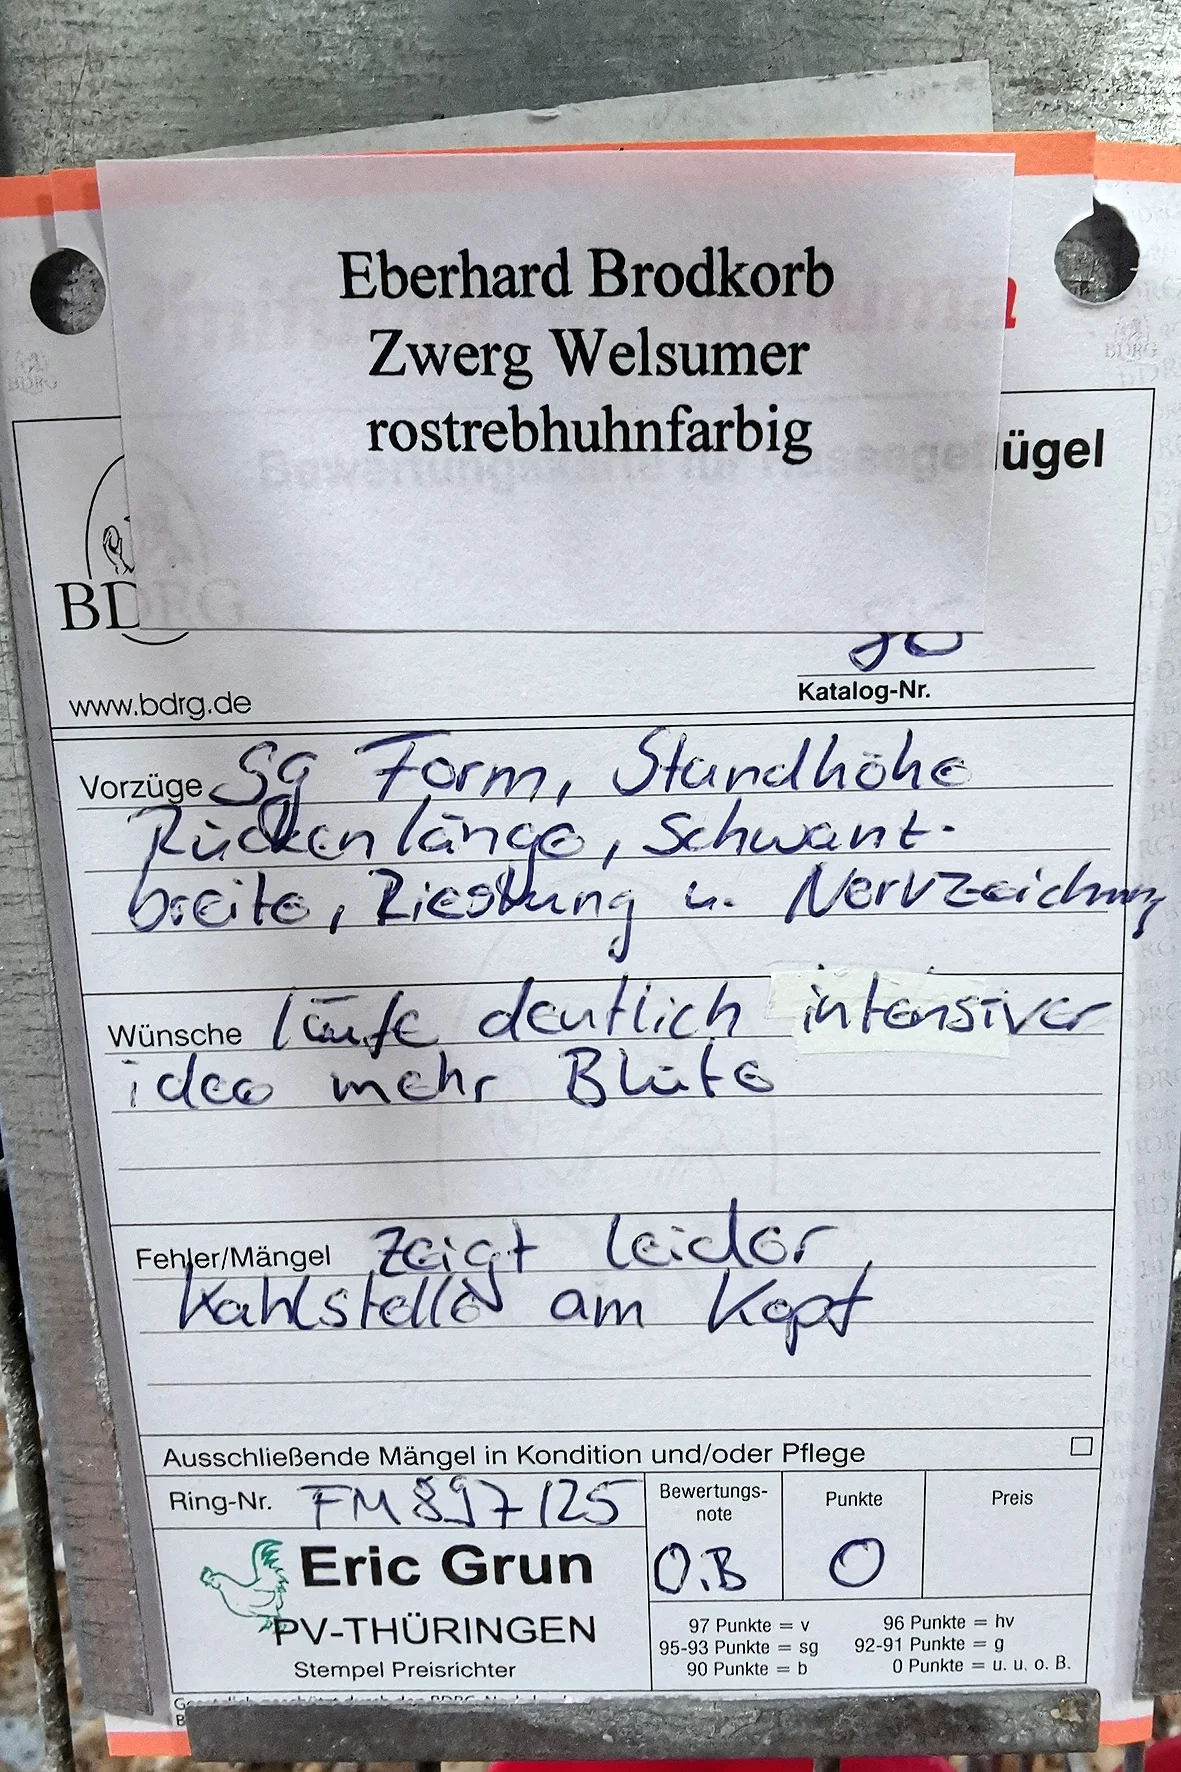 Eberhard Brodkorb
Zwerg Welsumer
rostrebhuhnfarbig
ügel
BDRG
www.bdrg.de
Katalog-Nr.
Vorzüge Sg Form, Standhöhe
Rückenlänge, Schwant-
breite, Rieselung u. Nervzeichnung
Wünsche läufe deutlich intensiver
idee mehr Blüte
Fehler/Mängel zeigt leider,
Kahlstelle am Kopf
Ausschließende Mängel in Kondition und/oder Pflege
Ring-Nr. FM 897/25
Bewertungs-
note
Punkte
Preis
O.B
0
Eric Grun
PV-THÜRINGEN
Stempel Preisrichter
97 Punkte = v 96 Punkte = hv
95-93 Punkte = sg 92-91 Punkte = g
90 Punkte = b 0 Punkte = u. u. o. B.